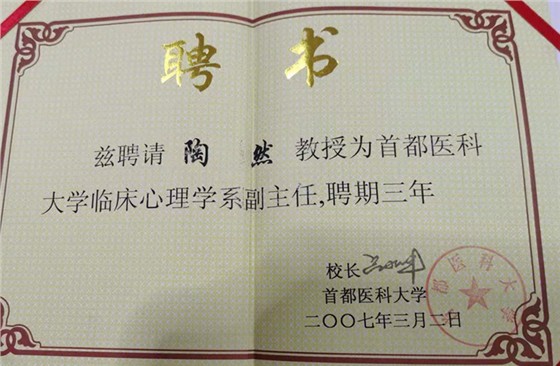 聘书
兹聘请 陶 然 教授为首都医科
大学临床心理学系副主任,聘期三年
校长
首都医科大学
二〇〇七年三月二日